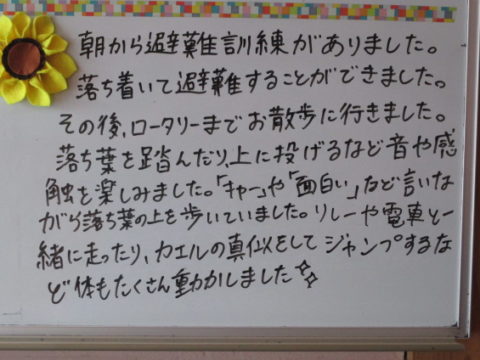 朝から避難訓練がありました。
落ち着いて避難することができました。
その後、ロータリーまでお散歩に行きました。
落ち葉を踏んだり、上に投げるなど音や感
触を楽しみました。「キャー」や「面白い」など言いな
がら落ち葉の上を歩いていました。リレーや電車と一
緒に走ったり、カエルの真似をしてジャンプするな
ど体もたくさん動かしました✨